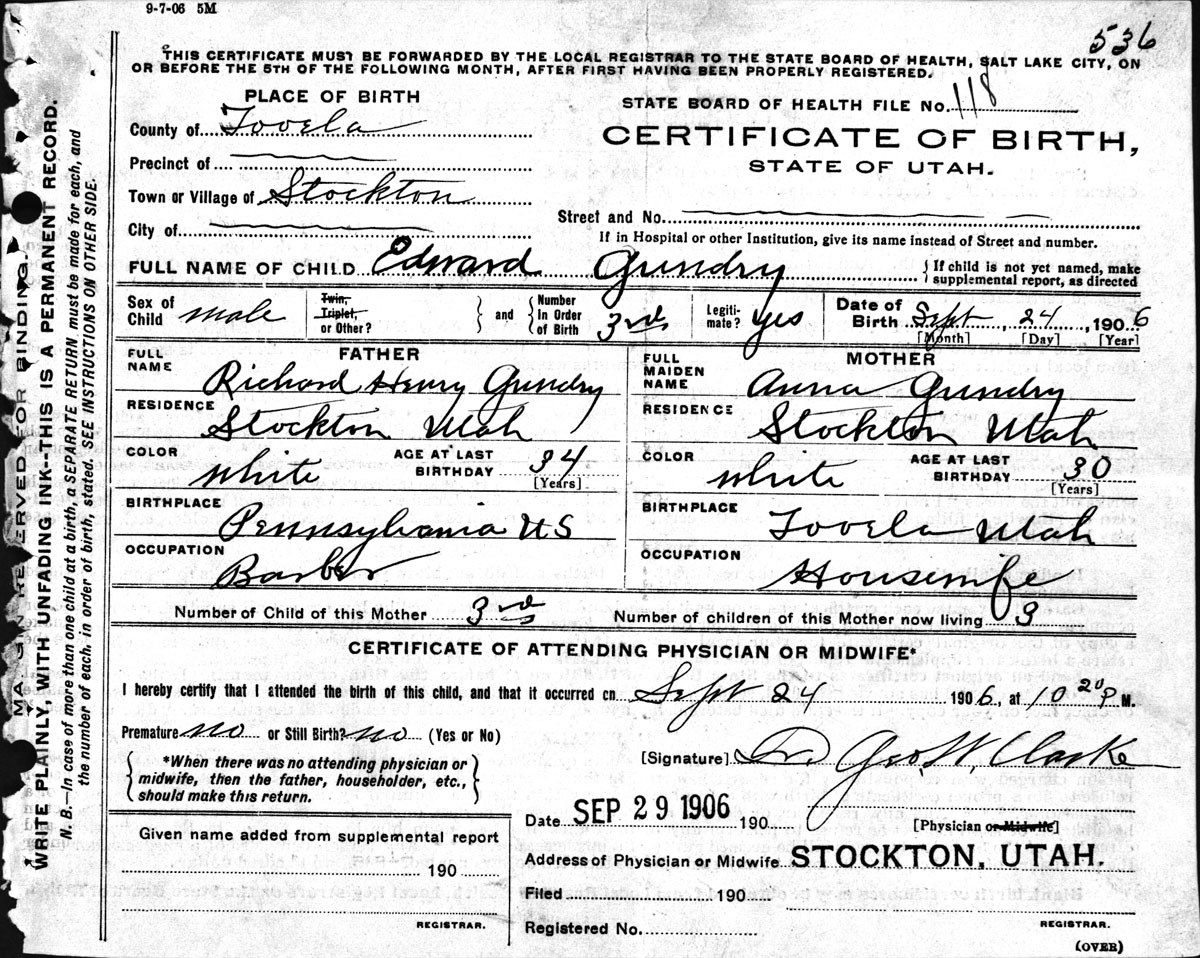 9-7-06 5M
536
THIS CERTIFICATE MUST BE FORWARDED BY THE LOCAL REGISTRAR TO THE STATE BOARD OF HEALTH, SALT LAKE CITY, ON
OR BEFORE THE 5TH OF THE FOLLOWING MONTH, AFTER FIRST HAVING BEEN PROPERLY REGISTERED.
PLACE OF BIRTH
STATE BOARD OF HEALTH FILE No. 118
County of Tooela
CERTIFICATE OF BIRTH,
STATE OF UTAH.
Precinct of
Town or Village of Stockton
Street and No.
City of
If in Hospital or other Institution, give its name instead of Street and number.
FULL NAME OF CHILD Edward Gundry { If child is not yet named, make
supplemental report, as directed
Sex of Child male Twin, Triplet, or Other? } and { Number In Order of Birth 3rd Legiti-mate? yes Date of Birth Sept, 24, 1906
[Month] [Day] [Year]
FATHER MOTHER
FULL NAME Richard Henry Gundry FULL MAIDEN NAME Anna Gundry
RESIDENCE Stockton Utah RESIDENCE Stockton Utah
COLOR white AGE AT LAST BIRTHDAY 34 [Years] COLOR white AGE AT LAST BIRTHDAY 30 [Years]
BIRTHPLACE Pennsylvania US BIRTHPLACE Tooela Utah
OCCUPATION Barber OCCUPATION Housewife
Number of Child of this Mother 3rd Number of children of this Mother now living 3
CERTIFICATE OF ATTENDING PHYSICIAN OR MIDWIFE*
I hereby certify that I attended the birth of this child, and that it occurred on Sept 24 1906, at 10 20 P M.
Premature no or Still Birth? no (Yes or No)
[Signature] Dr. Geo. W. Clarke
{ *When there was no attending physician or
midwife, then the father, householder, etc.,
should make this return. }
Date SEP 29 1906 190 [Physician or Midwife]
Given name added from supplemental report
Address of Physician or Midwife STOCKTON, UTAH.
190
Filed 190
REGISTRAR.
Registered No.
REGISTRAR.
(OVER)
MARGIN RESERVED FOR BINDING.
WRITE PLAINLY, WITH UNFADING INK--THIS IS A PERMANENT RECORD.
N. B.—In case of more than one child at a birth, a SEPARATE RETURN must be made for each, and
the number of each, in order of birth, stated. SEE INSTRUCTIONS ON OTHER SIDE.